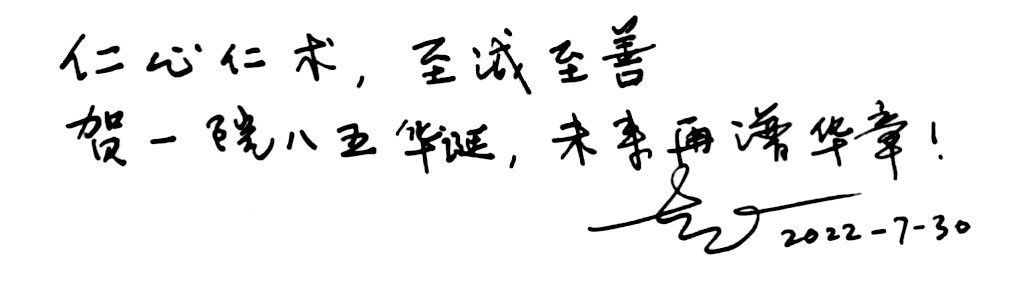 仁心仁术，至诚至善
贺一院八五华诞，未来再谱华章！
2022-7-30